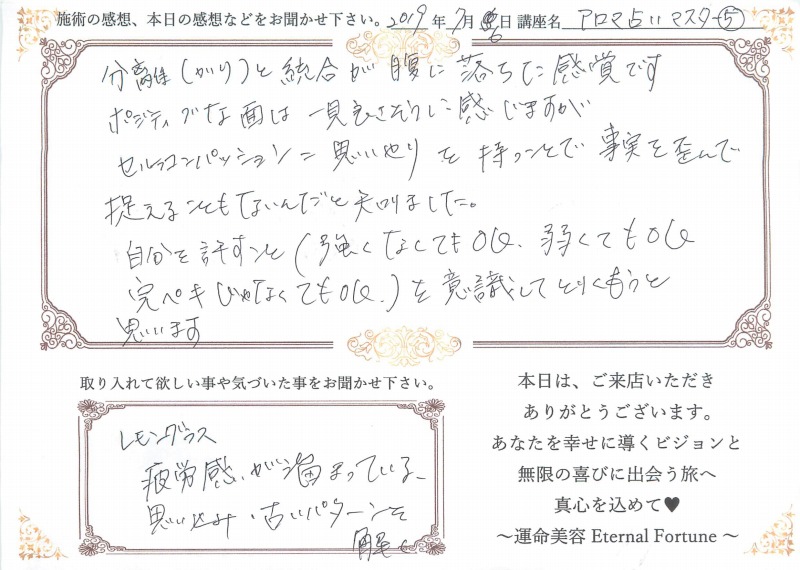 施術の感想、本日の感想などをお聞かせ下さい。2019年7月8日 講座名 アロマ占いマスター⑤
分離(かり)と統合が腹に落ちた感覚です
ポジティブな面は一見良さそうに感じますが
セルフコンパッション=思いやりを持つことで事実を歪んで
捉えることもないんだと知りました。
自分を許すこと(強くなくてもOK、弱くてもOK
完ペキじゃなくてもOK)を意識してとりくもうと
思います
取り入れて欲しい事や気づいた事をお聞かせ下さい。
レモングラス
疲労感が溜まっている、
思い込み・古いパターンを
解く
本日は、ご来店いただき
ありがとうございます。
あなたを幸せに導くビジョンと
無限の喜びに出会う旅へ
真心を込めて♥
〜運命美容 Eternal Fortune〜